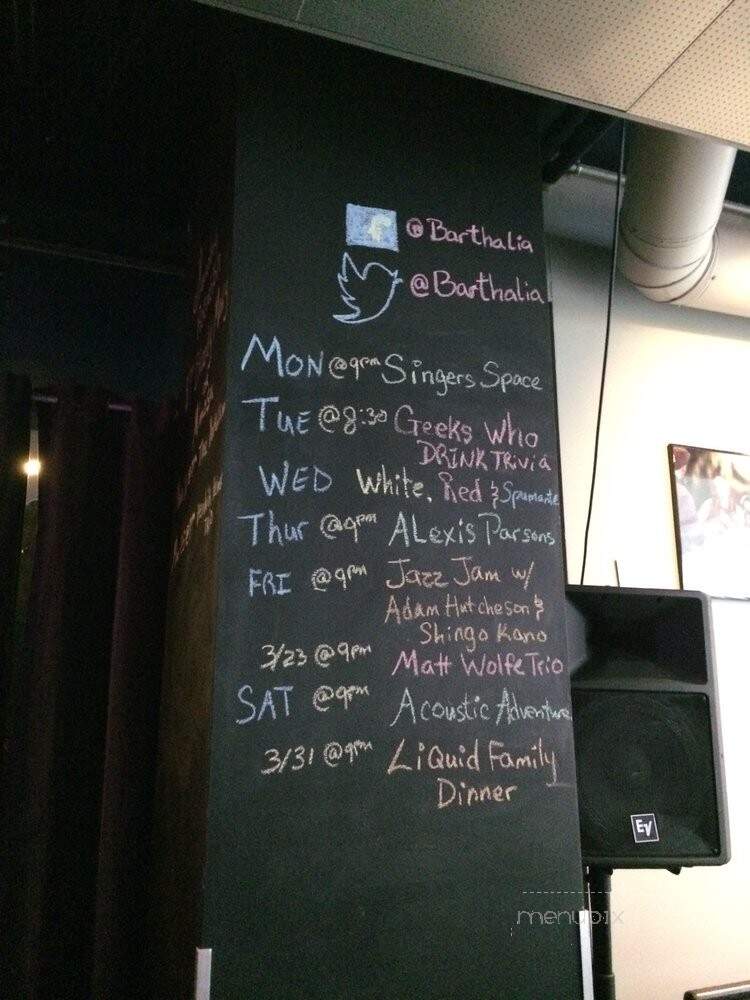 f @Barthalia
@Barthalia
MON @9pm Singers Space
TUE @8:30 Geeks Who
DRINK TRiviA
WED White, Red & Spumante
Thur @9pm ALexis Parsons
FRI @9pm Jazz Jam w/
Adam Hutcheson &
Shingo Kano
3/23 @9pm Matt Wolfe Trio
SAT @9pm Acoustic Adventure
3/31 @9pm LiQuid Family
Dinner
EV
menupix